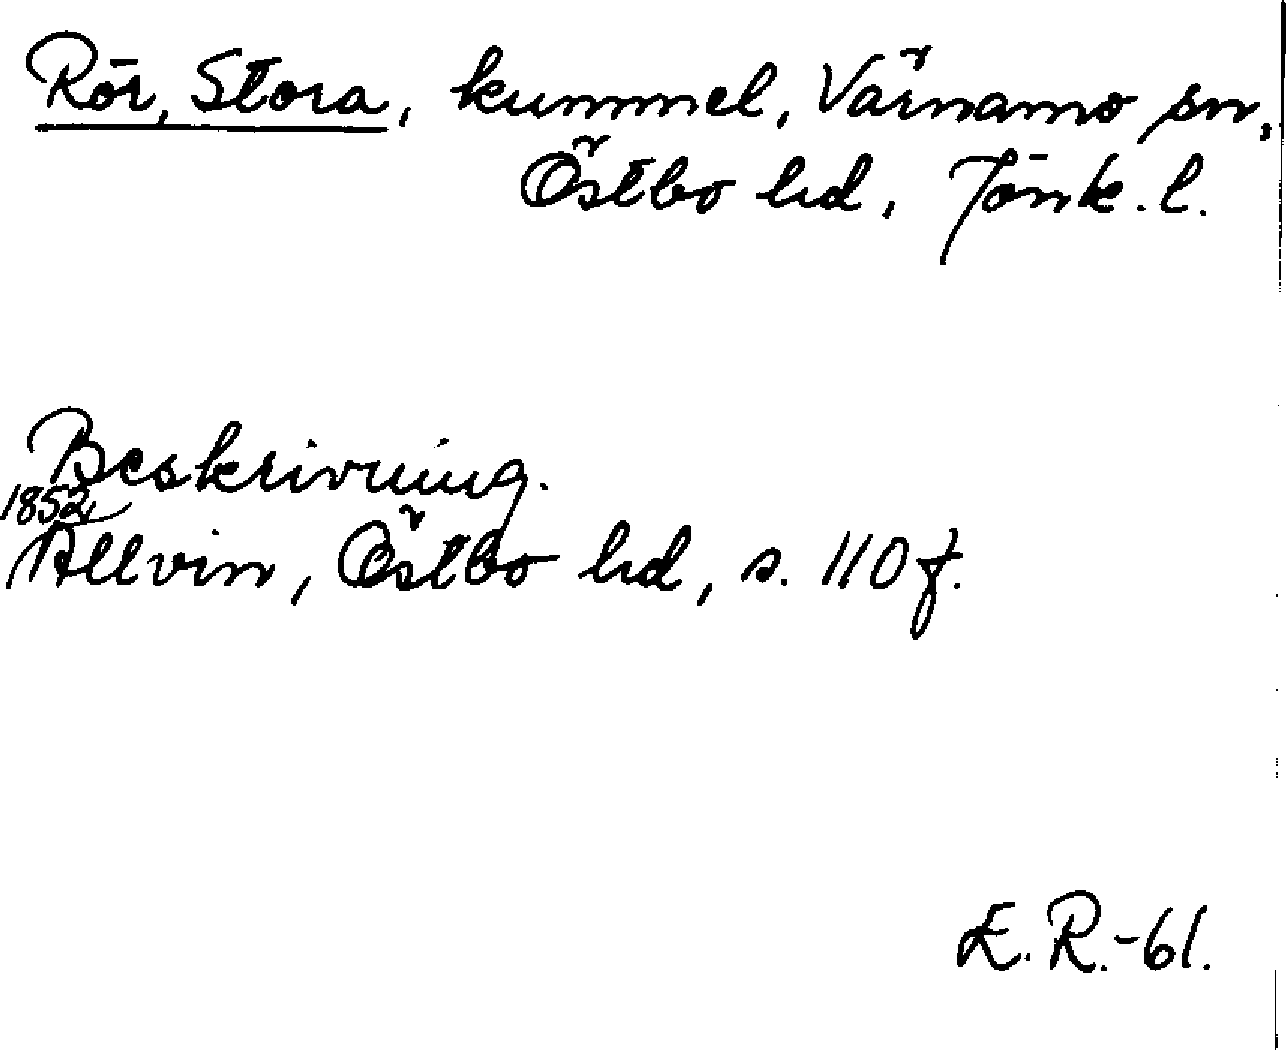 Rör, Stora, kummel, Värnamo sn,
Östbo hd, Jönk. l.
Beskrivning.
1852
Allvin, Östbo hd, s. 110 f.
E. R. -61.